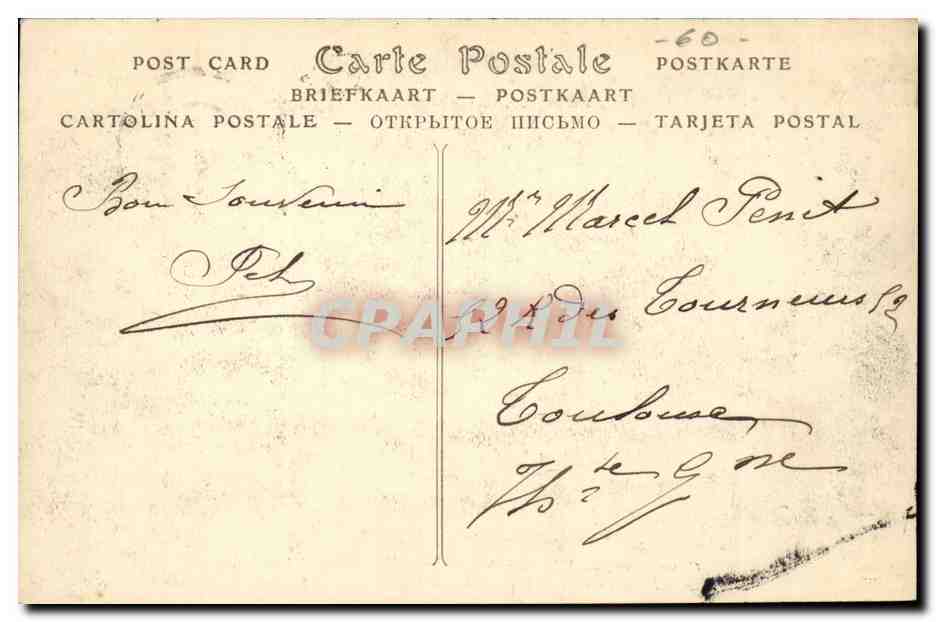 -60-
POST CARD Carte Postale POSTKARTE
BRIEFKAART — POSTKAART
CARTOLINA POSTALE — ОТКРЫТОЕ ПИСЬМО — TARJETA POSTAL
Bon Souvenir
Mr Marcel Penit
52 R des Tourneurs 52
Toulouse
Hte Gne
CPAPHIL